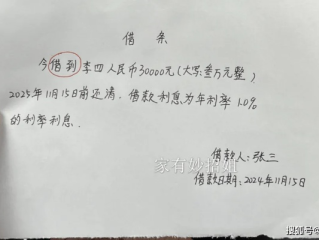 借条
今借到李四人民币30000元(大写:叁万元整)
2025年11月15日前还清.借款利息为年利率10%
的利率利息.
家有妙招姐
借款人:张三
借款日期:2024年11月15日
搜狐号@